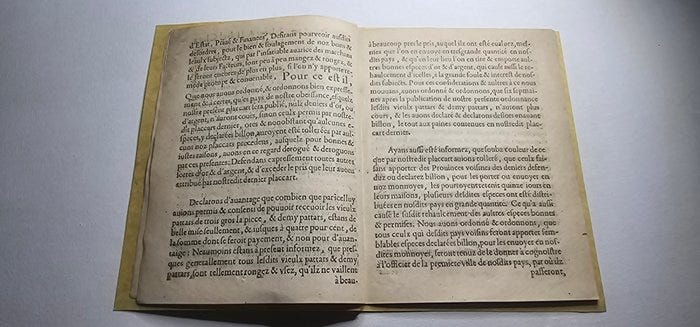 d'Estat, Priué & Finances, Desirans pourveoir ausdicts
desordres, pour le bien & soulagement de noz bons &
leaulx subjectz, qui par l'insatiable auarice des marchans
& de leurs Facteurs, sont peu à peu mangez & rongez, &
le seront encores de plus en plus, si l'on n'y apporte re-
mede prompt & conuenable. Pour ce est il,
Que nous auons ordonné & ordonnons bien expresse-
ment & à certes, qu'es pays de nostre obeissance, esquelz
nostre present placcart sera publié, nulz deniers d'or, ou
d'argent n'auront cours, sinon ceulx permis par nostredict
placcart dernier, ores & nonobstant qu'aulcunes e-
speces, y declarées billon, auroyent esté tollerées par aul-
cuns noz placcarts precedens, ausquelz pour bonnes &
iustes raisons, auons en ce regard derogué & deroguons
par ces presentes; Defendans expressement toutes autres
sortes d'or & d'argent, & d'exceder le pris que leur auons
attribué par nostredict dernier placcart.
Declarons d'auantage que combien que par icelluy
auions permis & consenti de pouuoir receuoir les vieulx
pattars de trois gros la piece, & demy pattars, estans de
belle mise seullement, & iusques à quatre pour cent, de
la somme dont se feroit payement, & non pour d'auan-
tage: Neaumoins estans à present informez, que pres-
ques generallement tous lesdits vieulx pattars & demy
pattars, sont tellement rongez & vsez, qu'ilz ne vaillent
à beau-
à beaucoup pres le pris, auquel ilz ont esté eualuez, mes-
mes que l'on en enuoye en tresgrande quantité en nos-
dits pays, & qu'en leur lieu l'on en tire & emporte au-
tres bonnes especes d'or & d'argent, qui cause aussi le re-
haulcement d'icelles, à la grande foule & interest de nos-
dits subjects. Pour ces considerations & aultres à ce nous
mouuans, auons ordonné & ordonnons, que six sepmai-
nes apres la publication de nostre presente ordonnance
lesdits vieulx pattars & demy pattars, n'auront plus
cours, & les auons declaré & declarons desors enauant
billon, le tout aux paines contenues en nostredit plac-
cart dernier.
Ayans aussi esté informez, que soubs couleur de ce
que par nostredit placcart auions tolleré, que ceulx fai-
sans apporter des Prouinces voisines des deniers defen-
duz ou declarez billon, pour les porter ou enuoyer en
noz monnoyes, les pourroyent retenir quinze iours en
leurs maisons, plusieurs desdites especes ont esté distri-
buées en nosdits pays en grande quantité. Ce qu'a aussi
causé le susdit rehaulcement des aultres especes bonnes
& permises. Nous auons ordonné & ordonnons, que
tous ceulx qui desdits pays voisins feront apporter sem-
blables especes declarées billon, pour les enuoyer en nos-
dites monnoyes, seront tenuz de le donner à cognoistre
à l'officier de la premiere ville de nosdits pays, par où ilz
passeront,